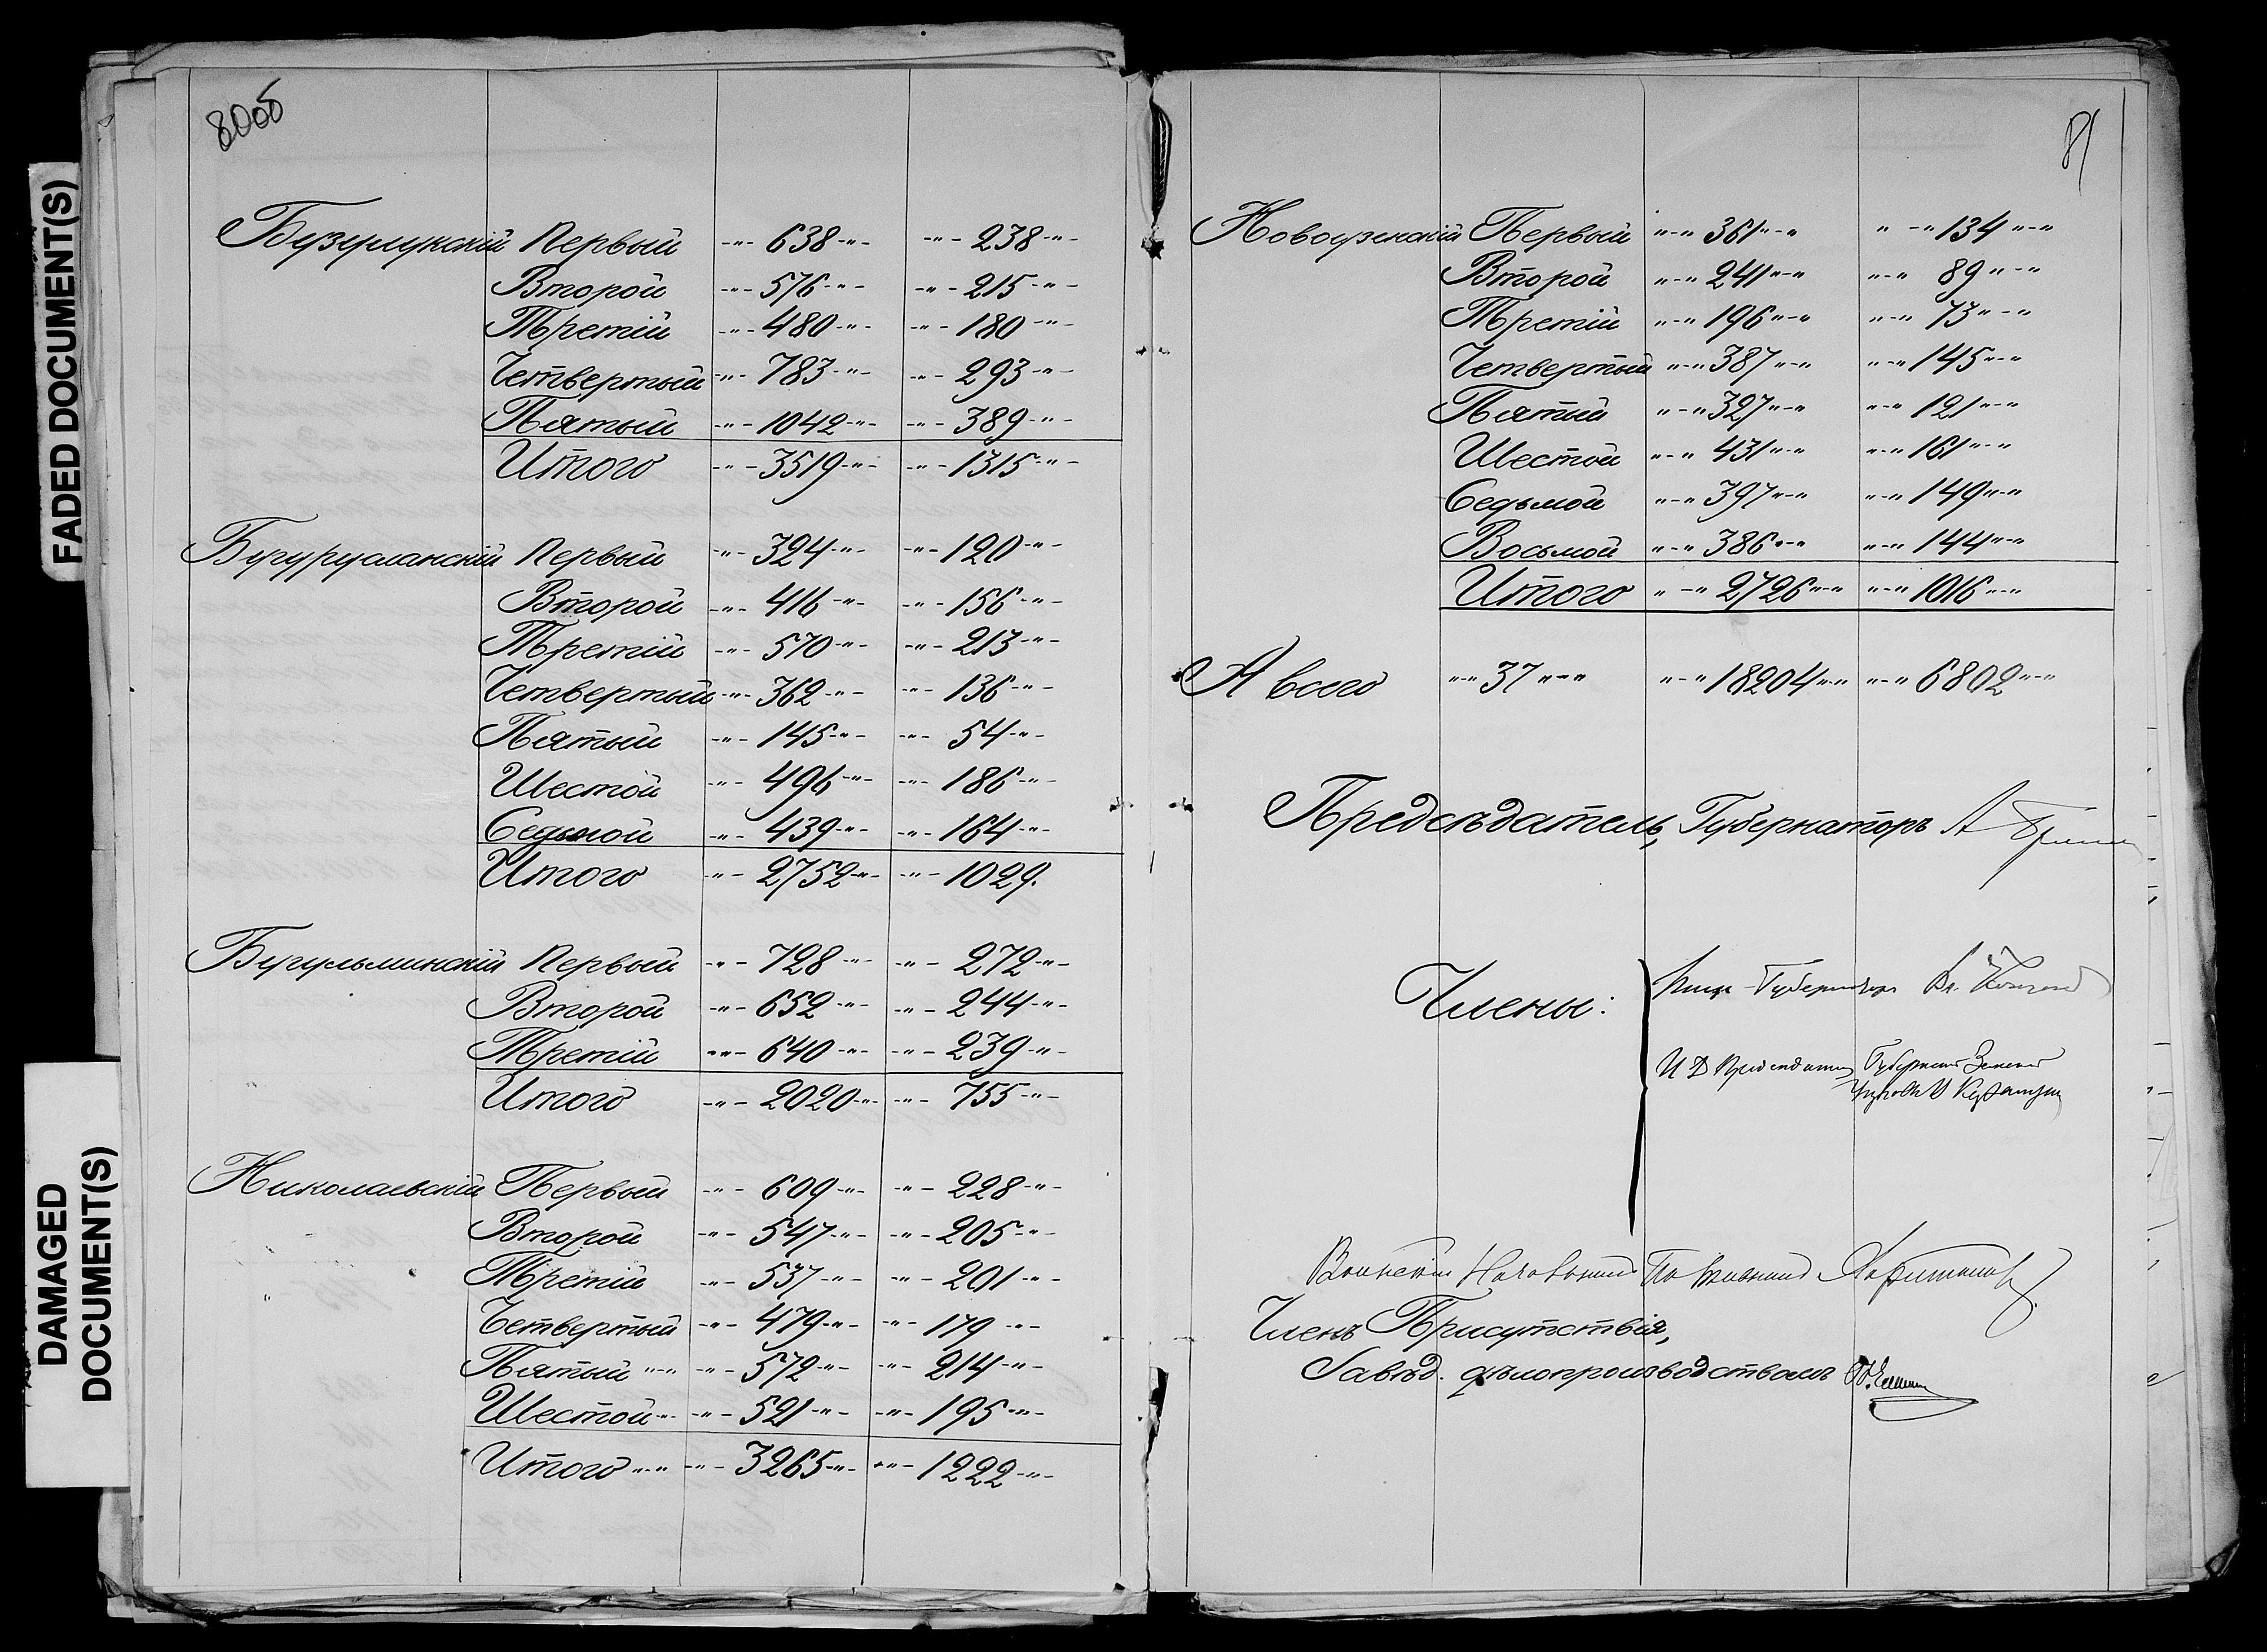 FADED DOCUMENT(S)
DAMAGED
DOCUMENT(S)
80об
Бузулукскій Первый -"- 638 -"- -"- 238 -"-
Второй -"- 576 -"- -"- 215 -"-
Третій -"- 480 -"- -"- 180 -"-
Четвертый -"- 783 -"- -"- 293 -"-
Пятый -"- 1042 -"- -"- 389 -"-
Итого -"- 3519 -"- -"- 1315 -"-
Бугурусланскій Первый -"- 324 -"- -"- 120 -"-
Второй -"- 416 -"- -"- 156 -"-
Третій -"- 570 -"- -"- 213 -"-
Четвертый -"- 362 -"- -"- 136 -"-
Пятый -"- 145 -"- -"- 54 -"-
Шестой -"- 496 -"- -"- 186 -"-
Седьмой -"- 439 -"- -"- 164 -"-
Итого -"- 2752 -"- -"- 1029.
Бугульминскій Первый -"- 728 -"- -"- 272 -"-
Второй -"- 652 -"- -"- 244 -"-
Третій -"- 640 -"- -"- 239 -"-
Итого -"- 2020 -"- -"- 755 -"-
Николаевскій Первый -"- 609 -"- -"- 228 -"-
Второй -"- 547 -"- -"- 205 -"-
Третій -"- 537 -"- -"- 201 -"-
Четвертый -"- 479 -"- -"- 179 -"-
Пятый "-" -"- 572 -"- -"- 214 -"-
Шестой -"- -"- 521 -"- -"- 195 -"-
Итого "-" -"- 3265 -"- -"- 1222 -"-
81
Новоузенскій Первый "-" 361 "-" "-" 134 "-"
Второй "-" 241 "-" "-" 89 "-"
Третій "-" 196 "-" "-" 73 "-"
Четвертый "-" 387 "-" "-" 145 "-"
Пятый "-" 327 "-" "-" 121 "-"
Шестой "-" 431 "-" "-" 161 "-"
Седьмой "-" 397 "-" "-" 149 "-"
Восьмой "-" 386 "-" "-" 144 "-"
Итого "-" 2726 "-" "-" 1016 "-"
А всего "-" 37 "-" "-" 18204 "-" "-" 6802 "-"
Предсѣдатель, Губернаторъ А
Члены:
Вице-Губернаторъ Вл.
И Д Предсѣдателя Губернской Земской
Управы
Воинскій Начальникъ
Членъ Присутствія,
Завѣд. дѣлопроизводствомъ